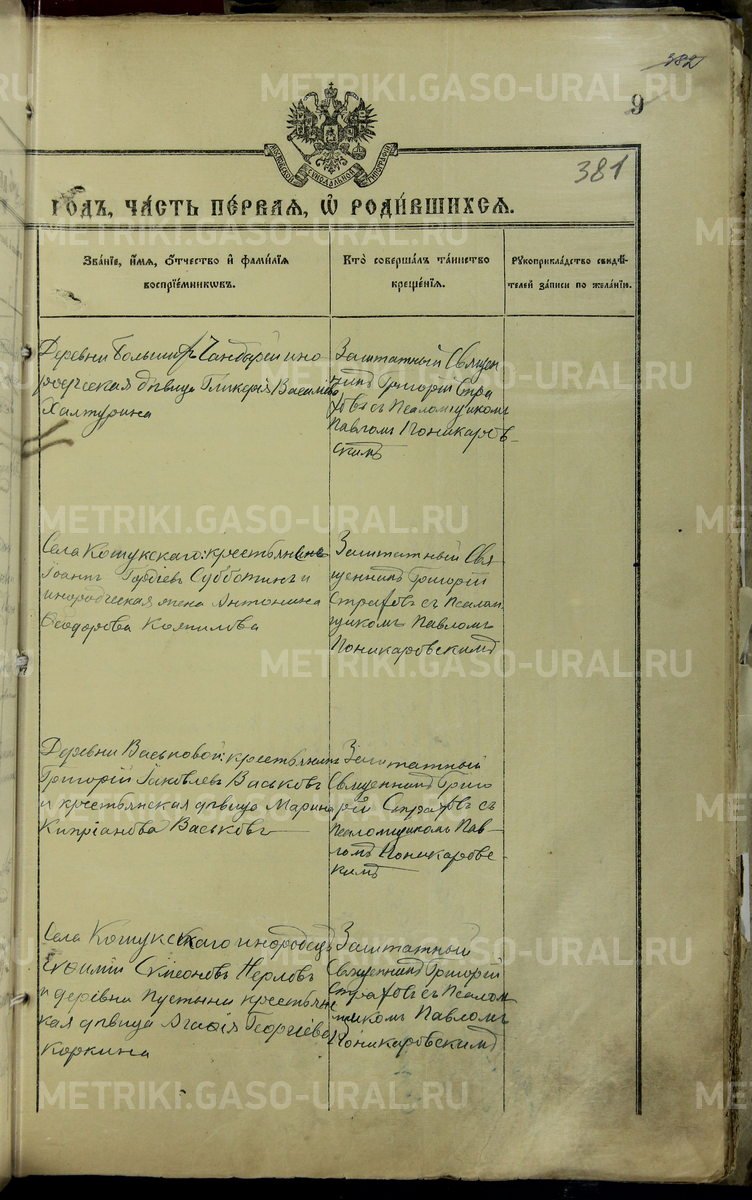 382
9
381
ГОДЪ, ЧА́СТЬ ПЕ́РВАЯ, Ѡ҆ РОДИ́ВШИХСЯ.
Зва́нїе, и҆́мя, ѻ҆́тчество и҆ фами́лїя
воспрїе́мникѡвъ.
Кто̀ соверша́лъ та́инство
креще́нїя.
Рꙋкоприкла́дство свидѣ́-
телей за́писи по жела́нїю.
Деревни Большихъ Чандырей ино
родческая дѣвица Гликерія Василіева
Халтурина
Заштатный Священ
никъ Григорій Стра
ховъ съ Псаломщикомъ
Павломъ Поникаров-
скимъ
Села Кошукскаго: крестьянинъ
Іоаннъ Субботинъ и
инородческая жена Антонина
Ѳеодорова Копылова
Заштатный Свя
щенникъ Григорій
Страховъ съ Псалом
щикомъ Павломъ
Поникаровскимъ
Деревни Васьковой: крестьянинъ
Григорій Іаковлевъ Васьковъ
и крестьянская дѣвица Марина
Кипріанова Васькова
Заштатный
Священникъ Григо
рій Страховъ съ
Псаломщикомъ Пав-
ломъ Поникаровс-
кимъ
Села Кошукскаго инородецъ
Евѳимій Симеоновъ Нерловъ
и деревни Пустыни крестьянс
кая дѣвица Агаѳія Георгіева
Коркина
Заштатный
Священникъ Григорій
Страховъ съ Псалом
щикомъ Павломъ
Поникаровскимъ
METRIKI.GASO-URAL.RU
METRIKI.GASO-URAL.RU
METRIKI.GASO-URAL.RU
METRIKI.GASO-URAL.RU
METRIKI.GASO-URAL.RU
METRIKI.GASO-URAL.RU
METRIKI.GASO-URAL.RU
METRIKI.GASO-URAL.RU